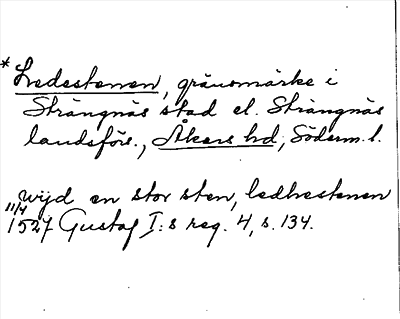 *Ledestenen, gränsmärke i
Strängnäs stad el. Strängnäs
landsförs., Åkers hd, Söderm. l.
wijd en stor sten, ledhestenen
11/4 1527 Gustaf I:s reg. 4, s. 134.